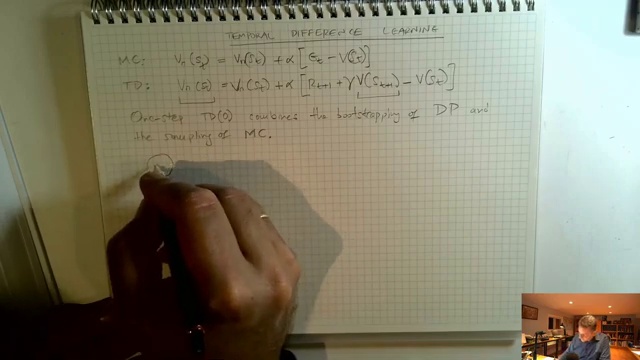 TEMPORAL DIFFERENCE LEARNING
MC: Vπ(St) = Vπ(St) + α [Gt - V(St)]
TD: Vπ(St) = Vπ(St) + α [Rt+1 + γ V(St+1) - V(St)]
One-step TD(0) combines the bootstrapping of DP and
the sampling of MC.